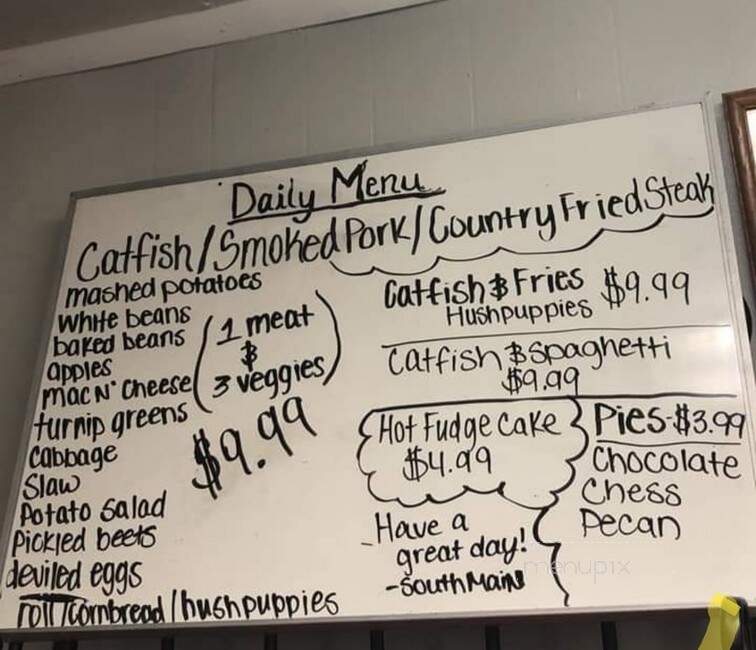 Daily Menu
Catfish/Smoked Pork/Country Fried Steak
mashed potatoes
White beans
baked beans
apples
mac N' Cheese
turnip greens
Cabbage
Slaw
Potato Salad
Pickled beets
deviled eggs
roll/cornbread/hushpuppies
(1 meat
&
3 veggies)
$9.99
Catfish & Fries $9.99
Hushpuppies
Catfish & Spaghetti
$9.99
Hot Fudge Cake
$4.99
Pies-$3.99
Chocolate
Chess
Pecan
-Have a
great day!
-South Main
menupix